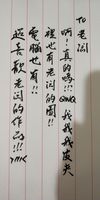 To 老闆
啊!真的嗎!!! QWQ 我我我丈夫
裡也有老闆的圖!!
電腦也有!!
超喜歡老闆的作品!!!